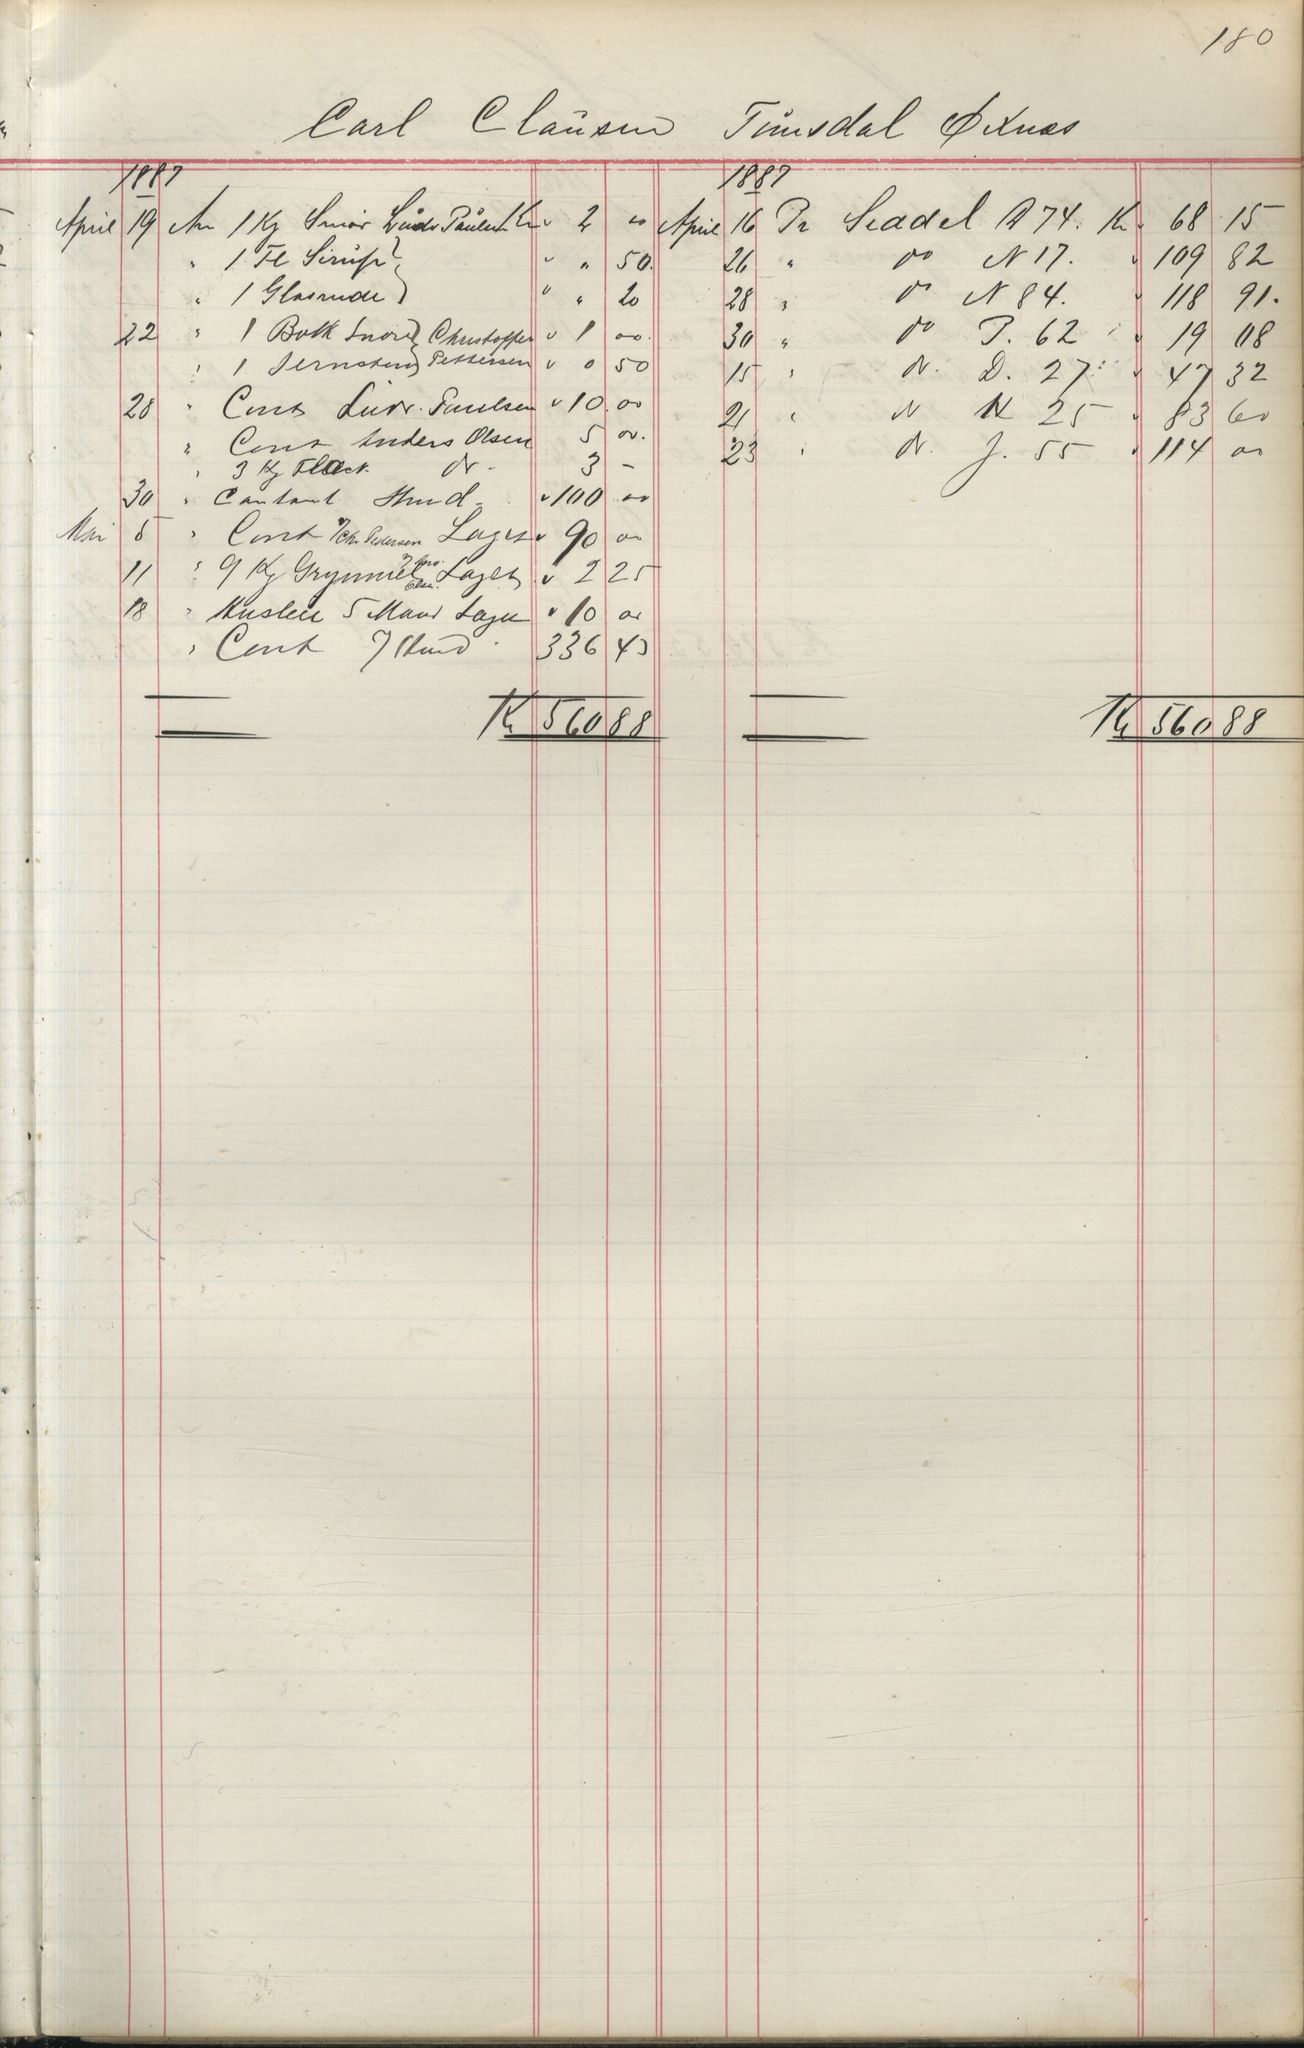 180
Carl Claüsen Tinnsdal Øxnæs
1887
April 19 An 1 Kg Smør Ludv Paulsen Kr " 2 00
" 1 Fl Sirup " " 50
" 1 Glasrude " " 20
22 " 1 Botk Snore Christoffer " 1 00
" 1 Jernsten Pettersen " 0 50
28 " Cont Ludv. Paulsen " 10 00
" Cont Anders Olsen 5 00
" 3 Kg Flæsk do 3 -
30 " Contant Hmd " 100 00
Mai 5 " Cont Pedersen Laget " 90 00
11 " 9 Kg Grynmel Laget " 2 25
18 " 5 Mand " 10 00
" Cont 336 43
Kr 560 88
1887
April 16 Pr Seddel A 74. Kr " 68 15
26 " do N 17. " 109 82
28 " do N 84. " 118 91.
30 " do P. 62 " 19 08
15 " do D. 27 " 47 32
21 " do N 25 " 83 60
23 " do J. 55 " 114 00
Kr 560 88